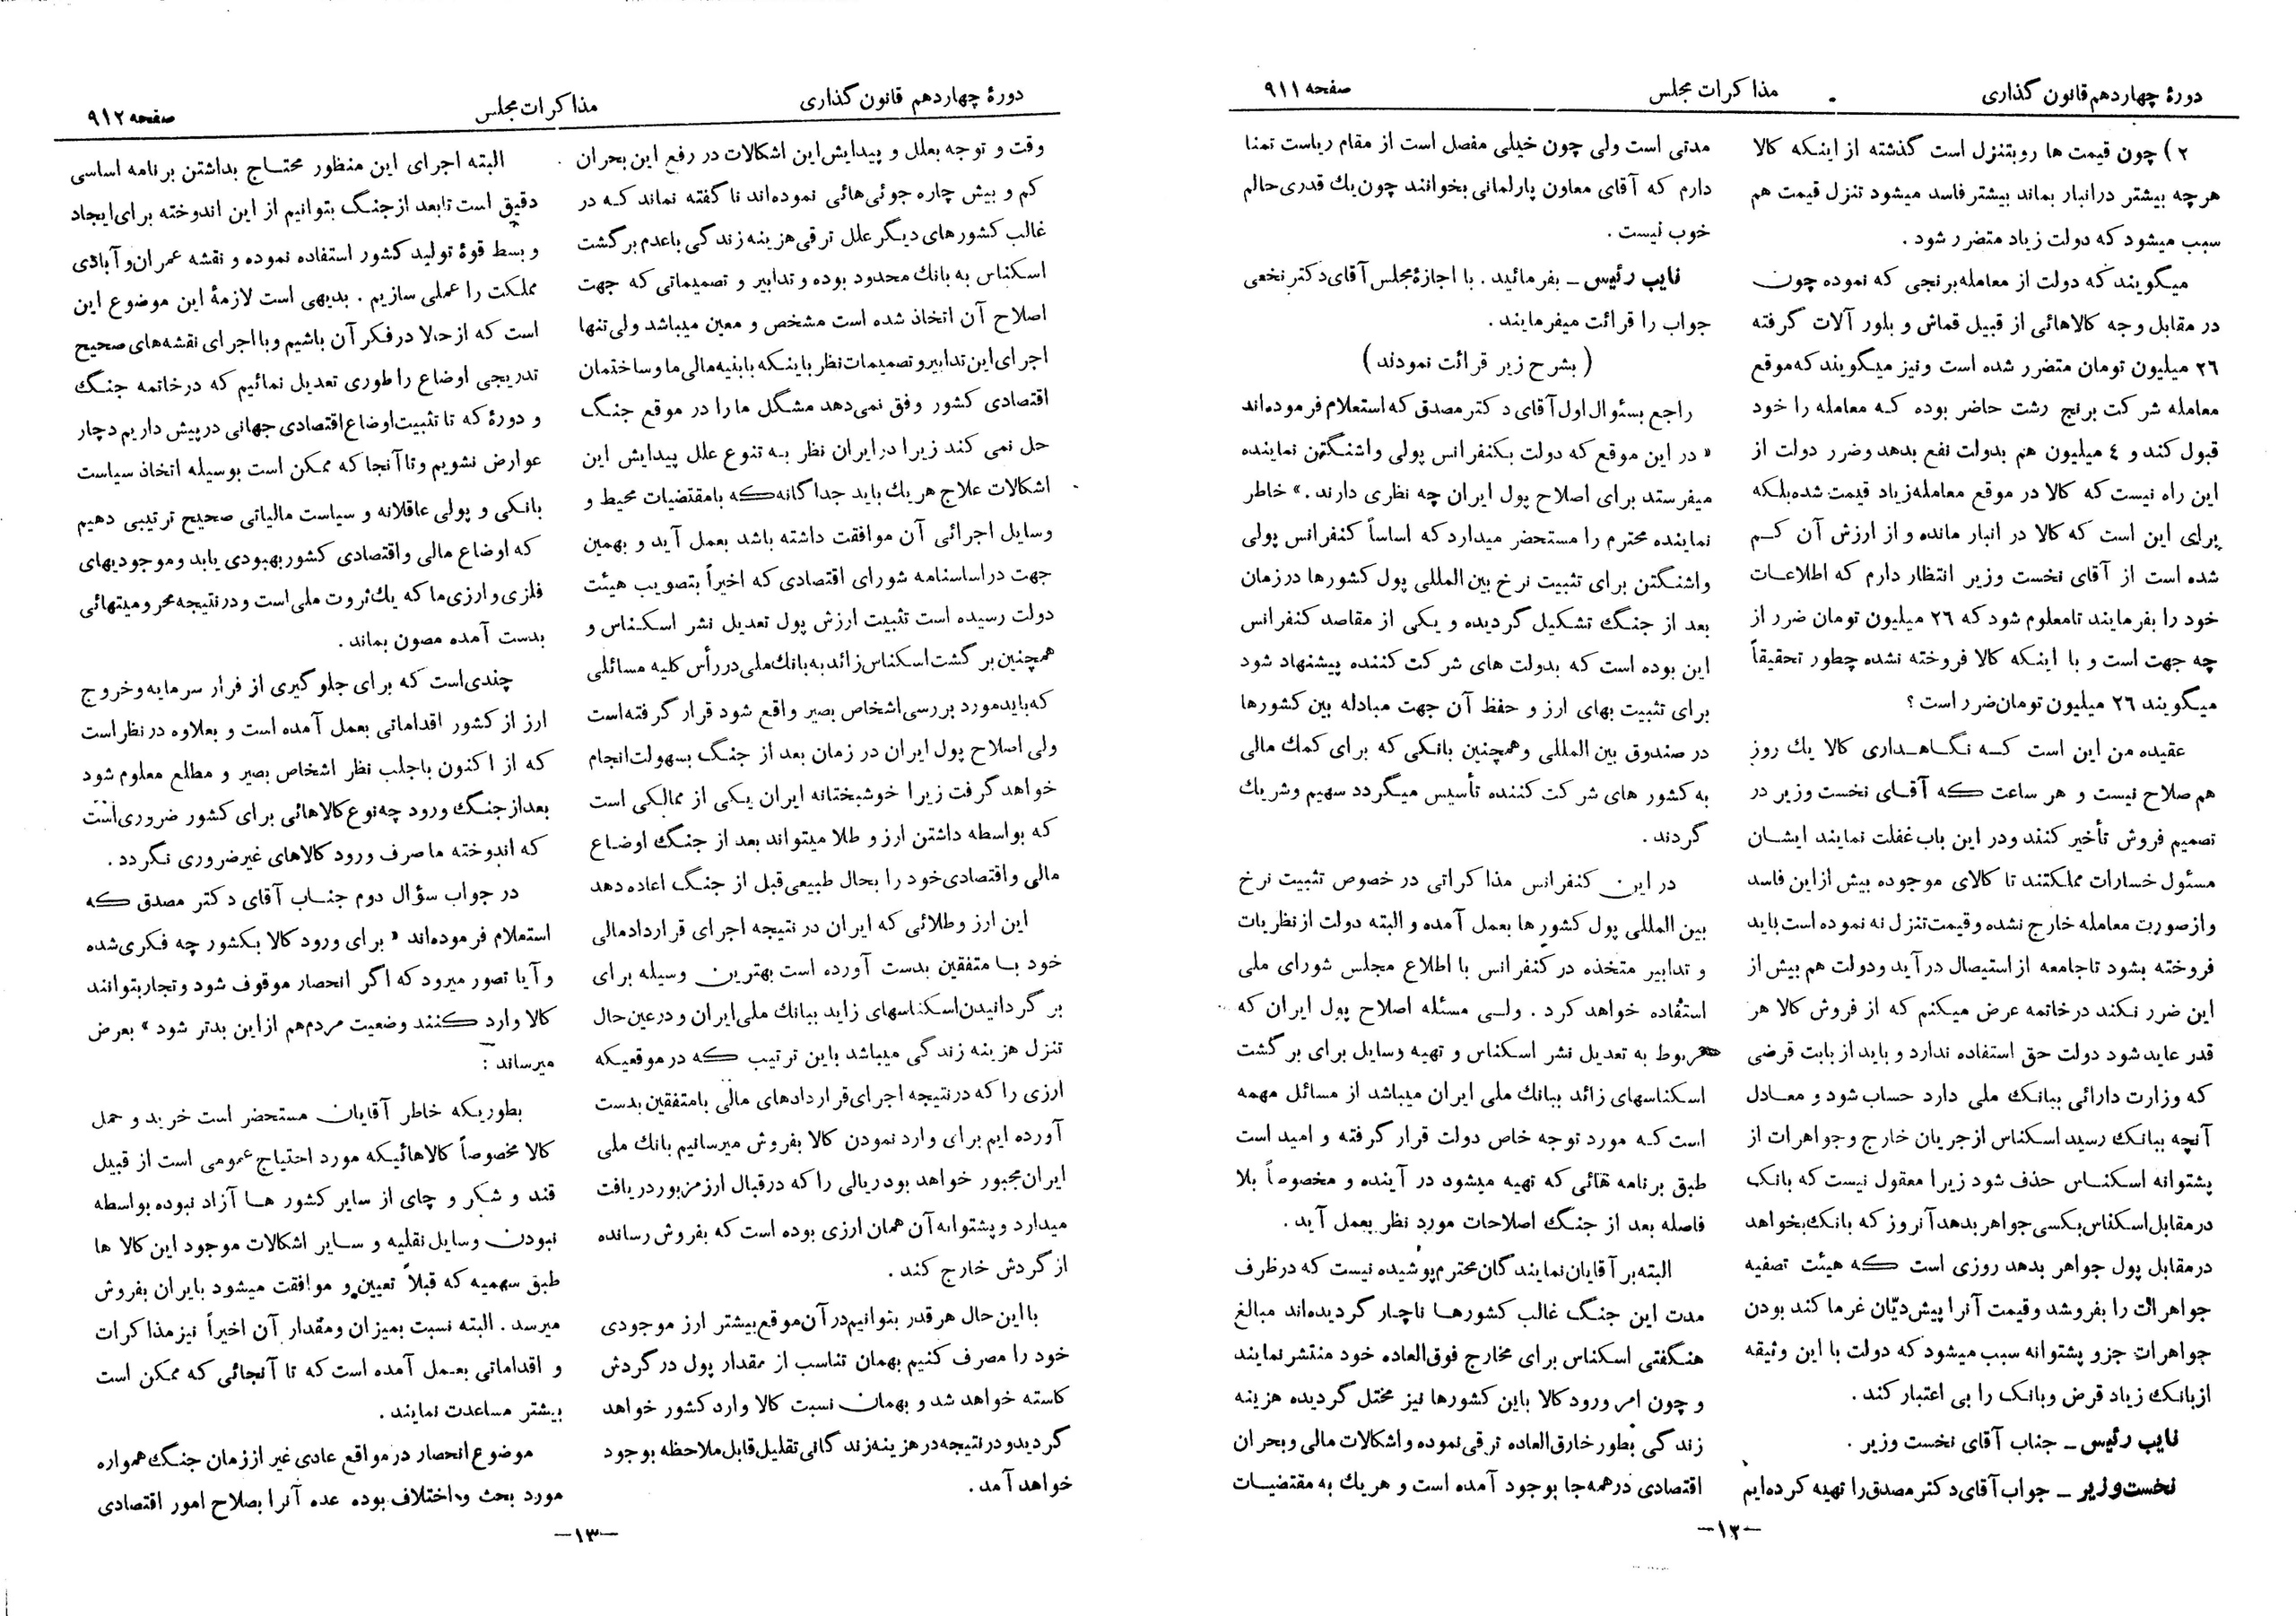 دورهٔ چهاردهم قانون گذاری
مذاکرات مجلس
صفحه ۹۱۱
۲) چون قیمت ها روبتنزل است گذشته از اینکه کالا
هرچه بیشتر درانبار بماند بیشتر فاسد میشود تنزل قیمت هم
سبب میشود که دولت زیاد متضرر شود .
میگویند که دولت از معامله برنجی که نموده چون
در مقابل وجه کالاهائی از قبیل قماش و بلور آلات گرفته
۲۶ میلیون تومان متضرر شده است ونیز میگویند که موقع
معامله شرکت برنج رشت حاضر بوده که معامله را خود
قبول کند و ٤ میلیون هم بدولت نفع بدهد وضرر دولت از
این راه نیست که کالا در موقع معامله زیاد قیمت شده بلکه
برای این است که کالا در انبار مانده و از ارزش آن کم
شده است از آقای نخست وزیر انتظار دارم که اطلاعات
خود را بفرمایند تامعلوم شود که ۲۶ میلیون تومان ضرر از
چه جهت است و با اینکه کالا فروخته نشده چطور تحقیقاً
میگویند ۲۶ میلیون تومان ضرر است ؟
عقیده من این است که نگاهداری کالا یك روز
هم صلاح نیست و هر ساعت که آقای نخست وزیر در
تصمیم فروش تأخیر کنند ودر این باب غفلت نمایند ایشان
مسئول خسارات مملکتند تا کالای موجوده بیش ازاین فاسد
وازصورت معامله خارج نشده وقیمت تنزل نه نموده است باید
فروخته بشود تاجامعه از استیصال درآید ودولت هم بیش از
این ضرر نکند درخاتمه عرض میکنم که از فروش کالا هر
قدر عاید شود دولت حق استفاده ندارد و باید از بابت قرضی
که وزارت دارائی ببانك ملی دارد حساب شود و معادل
آنچه ببانك رسید اسکناس ازجریان خارج وجواهرات از
پشتوانه اسکناس حذف شود زیرا معقول نیست که بانك
درمقابل اسکناس بکسی جواهر بدهد آنروز که بانك بخواهد
درمقابل پول جواهر بدهد روزی است که هیئت تصفیه
جواهرات را بفروشد وقیمت آنرا پیش دیّان غرما کند بودن
جواهرات جزو پشتوانه سبب میشود که دولت با این وثیقه
ازبانك زیاد قرض وبانك را بی اعتبار کند .
نایب رئیس ـ جناب آقای نخست وزیر .
نخست وزیر ـ جواب آقای دکتر مصدق را تهیه کرده ایم
مدتی است ولی چون خیلی مفصل است از مقام ریاست تمنا
دارم که آقای معاون پارلمانی بخوانند چون یك قدری حالم
خوب نیست .
نایب رئیس ـ بفرمائید . با اجازهٔ مجلس آقای دکتر نخعی
جواب را قرائت میفرمایند .
( بشرح زیر قرائت نمودند )
راجع بسئوال اول آقای دکتر مصدق که استعلام فرموده اند
« در این موقع که دولت بکنفرانس پولی واشنگتن نماینده
میفرستد برای اصلاح پول ایران چه نظری دارند .» خاطر
نماینده محترم را مستحضر میدارد که اساساً کنفرانس پولی
واشنگتن برای تثبیت نرخ بین المللی پول کشورها درزمان
بعد از جنگ تشکیل گردیده و یکی از مقاصد کنفرانس
این بوده است که بدولت های شرکت کننده پیشنهاد شود
برای تثبیت بهای ارز و حفظ آن جهت مبادله بین کشورها
در صندوق بین المللی وهمچنین بانکی که برای کمك مالی
به کشور های شرکت کننده تأسیس میگردد سهیم وشریك
گردند .
در این کنفرانس مذاکراتی در خصوص تثبیت نرخ
بین المللی پول کشورها بعمل آمده و البته دولت از نظریات
و تدابیر متخذه در کنفرانس با اطلاع مجلس شورای ملی
استفاده خواهد کرد . ولی مسئله اصلاح پول ایران که
مربوط به تعدیل نشر اسکناس و تهیه وسایل برای برگشت
اسکناسهای زائد ببانك ملی ایران میباشد از مسائل مهمه
است که مورد توجه خاص دولت قرار گرفته و امید است
طبق برنامه هائی که تهیه میشود در آینده و مخصوصاً بلا
فاصله بعد از جنگ اصلاحات مورد نظر بعمل آید .
البته بر آقایان نمایندگان محترم پوشیده نیست که درظرف
مدت این جنگ غالب کشورها ناچار گردیده اند مبالغ
هنگفتی اسکناس برای مخارج فوق العاده خود منتشر نمایند
و چون امر ورود کالا باین کشورها نیز مختل گردیده هزینه
زندگی بطور خارق العاده ترقی نموده و اشکالات مالی وبحران
اقتصادی درهمه جا بوجود آمده است و هریك به مقتضیات
ـ۱۲ـ
دورهٔ چهاردهم قانون گذاری
مذاکرات مجلس
صفحه ۹۱۲
وقت و توجه بعلل و پیدایش این اشکالات در رفع این بحران
کم و بیش چاره جوئی هائی نموده اند نا گفته نماند که در
غالب کشورهای دیگر علل ترقی هزینه زندگی باعدم برگشت
اسکناس به بانك محدود بوده و تدابیر و تصمیماتی که جهت
اصلاح آن اتخاذ شده است مشخص و معین میباشد ولی تنها
اجرای این تدابیر و تصمیمات نظر باینکه با بنیه مالی ما وساختمان
اقتصادی کشور وفق نمی دهد مشگل ما را در موقع جنگ
حل نمی کند زیرا درایران نظر به تنوع علل پیدایش این
اشکالات علاج هریك باید جداگانه که بامقتضیات محیط و
وسایل اجرائی آن موافقت داشته باشد بعمل آید و بهمین
جهت دراساسنامه شورای اقتصادی که اخیراً بتصویب هیئت
دولت رسیده است تثبیت ارزش پول تعدیل نشر اسکناس و
همچنین برگشت اسکناس زائد به بانك ملی در رأس کلیه مسائلی
که باید مورد بررسی اشخاص بصیر واقع شود قرار گرفته است
ولی اصلاح پول ایران در زمان بعد از جنگ بسهولت انجام
خواهد گرفت زیرا خوشبختانه ایران یکی از ممالکی است
که بواسطه داشتن ارز و طلا میتواند بعد از جنگ اوضاع
مالی واقتصادی خود را بحال طبیعی قبل از جنگ اعاده دهد
این ارز وطلائی که ایران در نتیجه اجرای قرارداد مالی
خود با متفقین بدست آورده است بهترین وسیله برای
بر گردانیدن اسکناسهای زاید ببانك ملی ایران و درعین حال
تنزل هزینه زندگی میباشد باین ترتیب که درموقعیکه
ارزی را که درنتیجه اجرای قراردادهای مالی بامتفقین بدست
آورده ایم برای وارد نمودن کالا بفروش میرسانیم بانك ملی
ایران مجبور خواهد بود ریالی را که درقبال ارزمزبور دریافت
میدارد و پشتوانه آن همان ارزی بوده است که بفروش رسانده
از گردش خارج کند .
بااین حال هرقدر بتوانیم درآن موقع بیشتر ارز موجودی
خود را مصرف کنیم بهمان تناسب از مقدار پول در گردش
کاسته خواهد شد و بهمان نسبت کالا وارد کشور خواهد
گردید و درنتیجه درهزینه زندگانی تقلیل قابل ملاحظه بوجود
خواهد آمد .
البته اجرای این منظور محتاج بداشتن برنامه اساسی
دقیق است تابعد ازجنگ بتوانیم از این اندوخته برای ایجاد
و بسط قوهٔ تولید کشور استفاده نموده و نقشه عمران و آبادی
مملکت را عملی سازیم . بدیهی است لازمهٔ این موضوع این
است که ازحالا درفکر آن باشیم وبا اجرای نقشه های صحیح
تدریجی اوضاع را طوری تعدیل نمائیم که درخاتمه جنگ
و دورهٔ که تا تثبیت اوضاع اقتصادی جهانی درپیش داریم دچار
عوارض نشویم وتا آنجا که ممکن است بوسیله اتخاذ سیاست
بانکی و پولی عاقلانه و سیاست مالیاتی صحیح ترتیبی دهیم
که اوضاع مالی و اقتصادی کشور بهبودی یابد و موجودیهای
فلزی و ارزی ما که یك ثروت ملی است و درنتیجه محرومیتهائی
بدست آمده مصون بماند .
چندی است که برای جلوگیری از فرار سرمایه وخروج
ارز از کشور اقداماتی بعمل آمده است و بعلاوه درنظر است
که از اکنون باجلب نظر اشخاص بصیر و مطلع معلوم شود
بعد ازجنگ ورود چه نوع کالاهائی برای کشور ضروری است
که اندوخته ما صرف ورود کالاهای غیرضروری نگردد .
در جواب سؤال دوم جناب آقای دکتر مصدق که
استعلام فرموده اند « برای ورود کالا بکشور چه فکری شده
و آیا تصور میرود که اگر انحصار موقوف شود وتجار بتوانند
کالا وارد کنند وضعیت مردم هم ازاین بدتر شود » بعرض
میرساند :
بطوریکه خاطر آقایان مستحضر است خرید و حمل
کالا مخصوصاً کالاهائیکه مورد احتیاج عمومی است از قبیل
قند و شکر و چای از سایر کشور ها آزاد نبوده بواسطه
نبودن وسایل نقلیه و سایر اشکالات موجود این کالا ها
طبق سهمیه که قبلاً تعیین و موافقت میشود بایران بفروش
میرسد . البته نسبت بمیزان ومقدار آن اخیراً نیز مذاکرات
و اقداماتی بعمل آمده است که تا آنجائی که ممکن است
بیشتر مساعدت نمایند .
موضوع انحصار در مواقع عادی غیر اززمان جنگ همواره
مورد بحث و اختلاف بوده عده آنرا بصلاح امور اقتصادی
ـ۱۳ـ